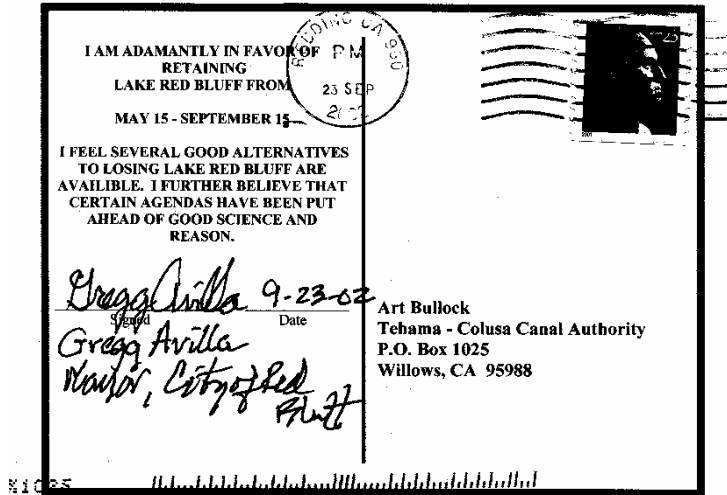 I AM ADAMANTLY IN FAVOR OF
RETAINING
LAKE RED BLUFF FROM
MAY 15 - SEPTEMBER 15
I FEEL SEVERAL GOOD ALTERNATIVES
TO LOSING LAKE RED BLUFF ARE
AVAILIBLE. I FURTHER BELIEVE THAT
CERTAIN AGENDAS HAVE BEEN PUT
AHEAD OF GOOD SCIENCE AND
REASON.
Gregg Avilla 9-23-02
Signed Date
Gregg Avilla
Mayor, City of Red
Bluff
REDDING CA 960
PM
23 SEP
2002
23
2001
Art Bullock
Tehama - Colusa Canal Authority
P.O. Box 1025
Willows, CA 95988